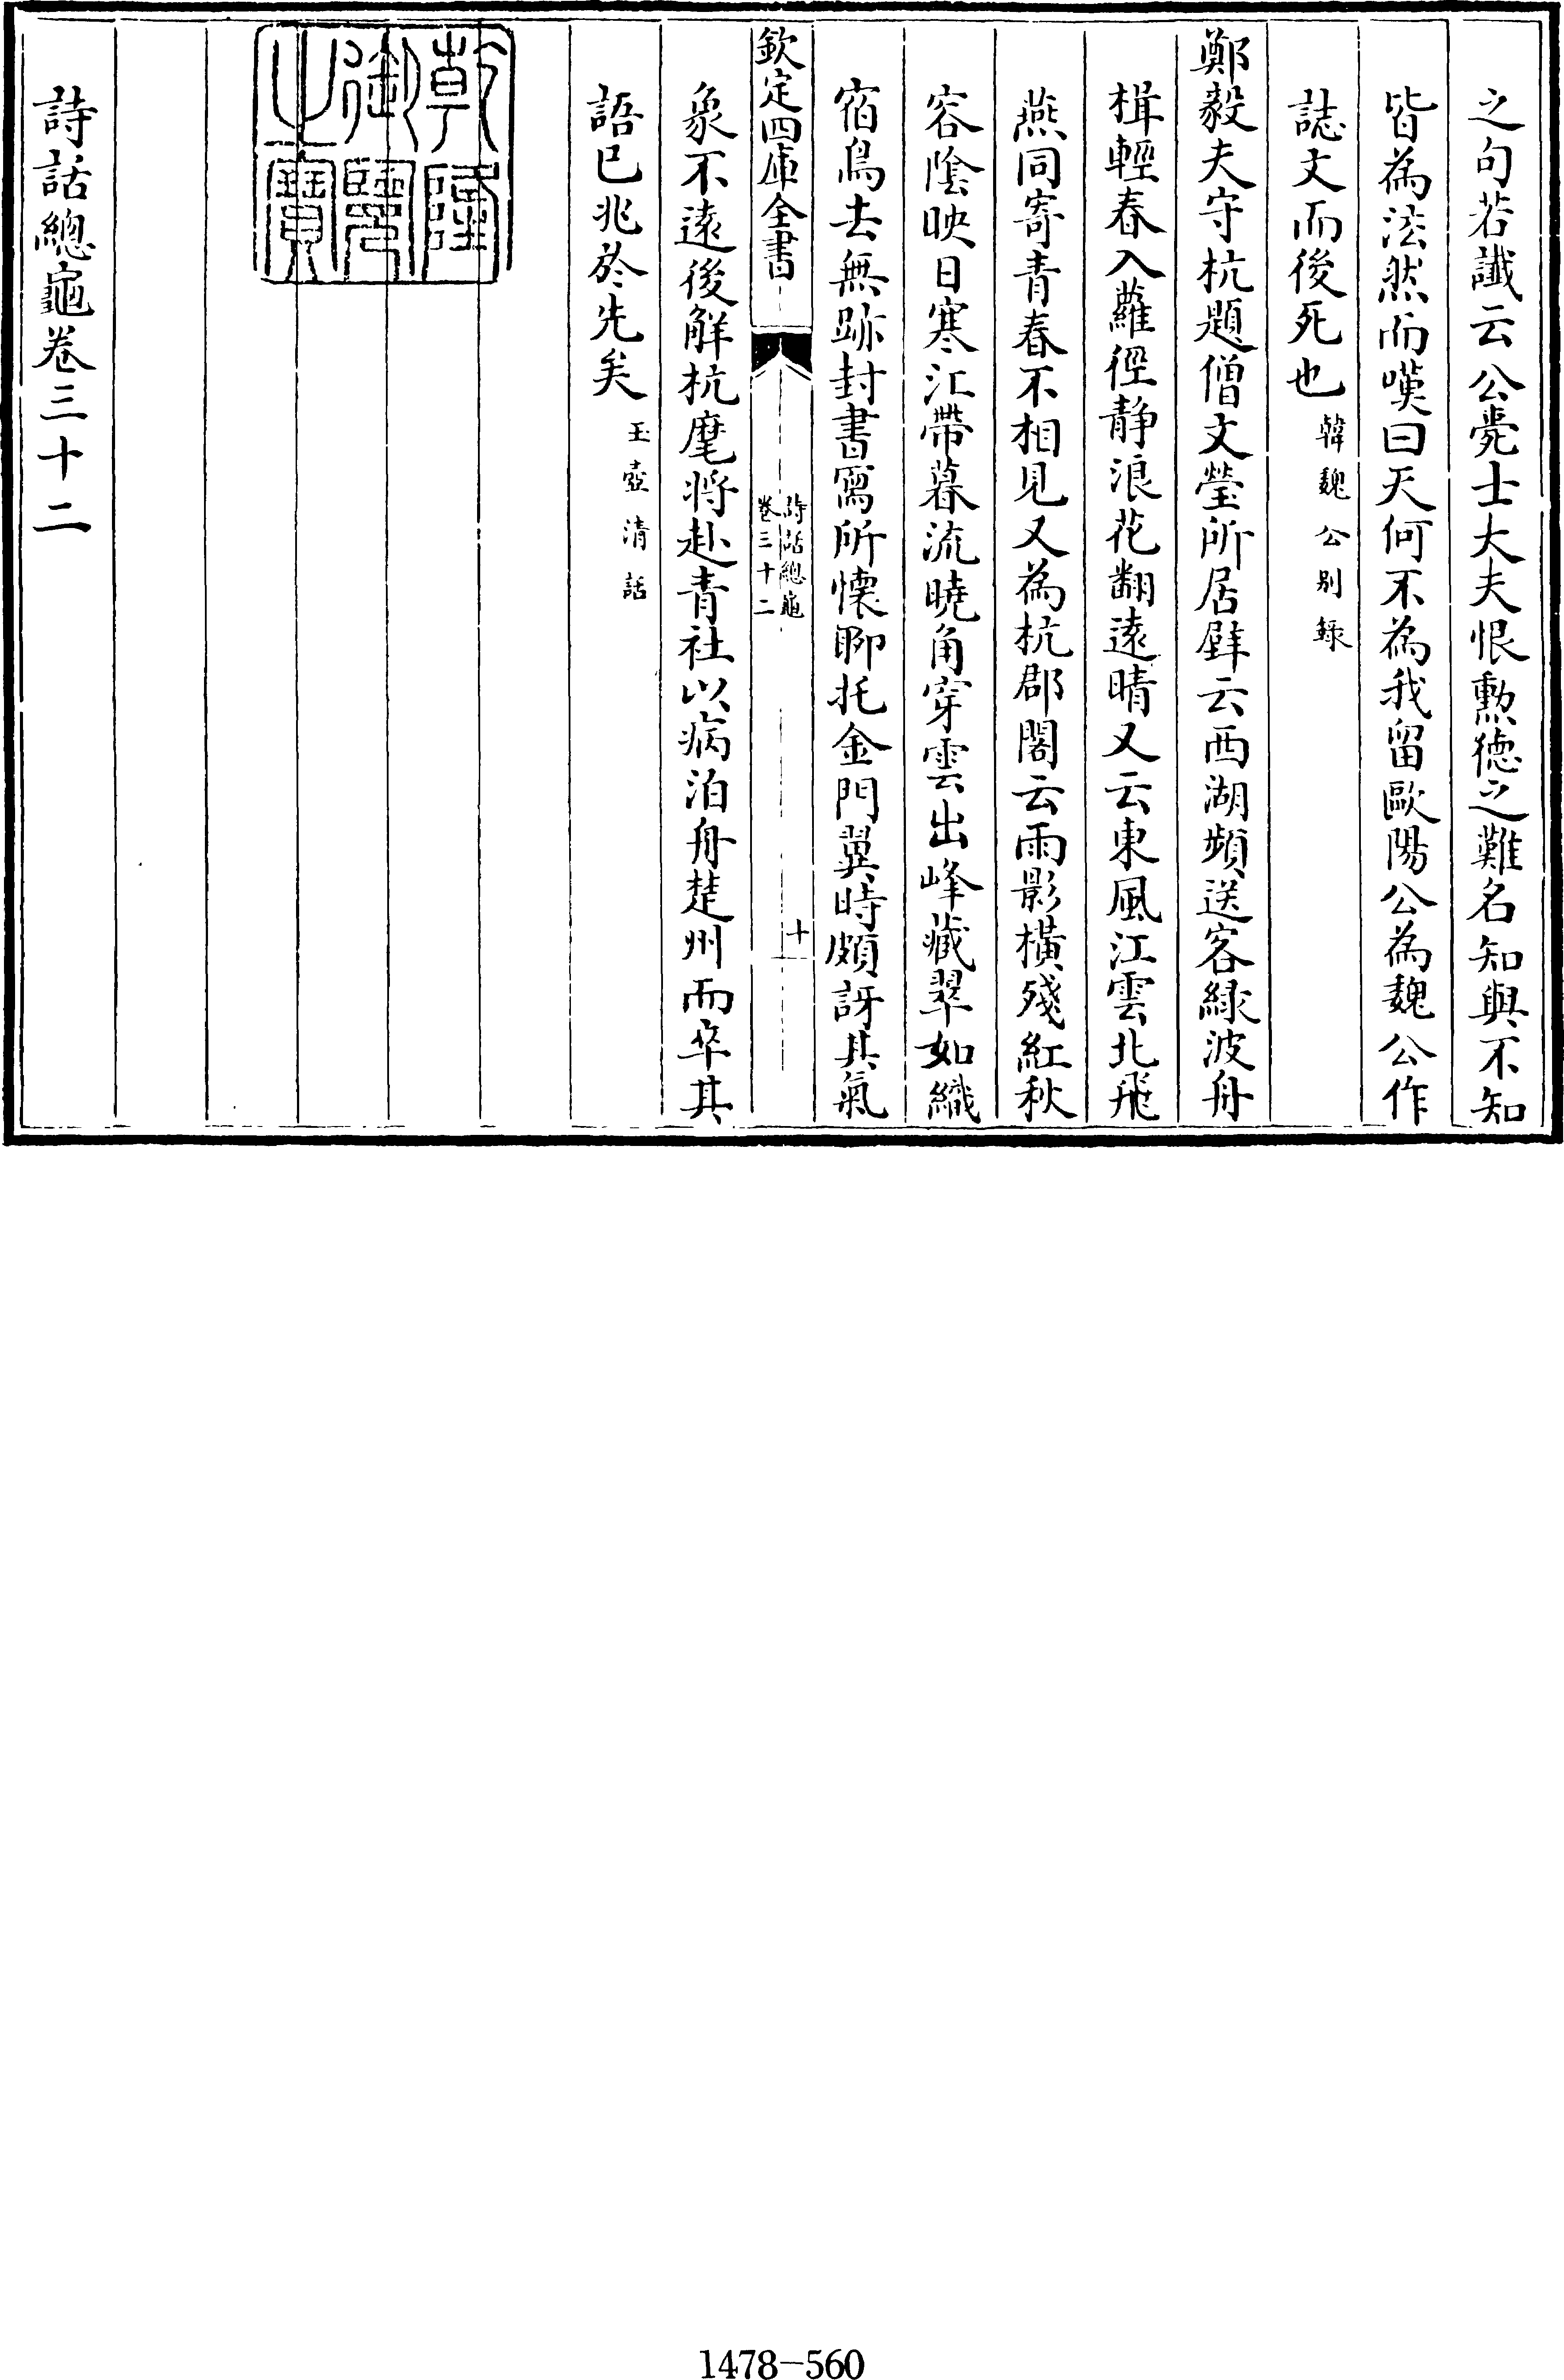 之句若讖云公薨士大夫恨勲徳之難名知與不知
皆為法然而嘆曰天何不為我留歐陽公為魏公作
誌文而後死也韓魏公别録
鄭毅夫守杭題僧文瑩所居壁云西湖頻送客緑波舟
楫輕春入蘿徑静浪花翻遠晴又云東風江雲北飛
燕同寄青春不相見又為杭郡閣云雨影横殘紅秋
容陰映日寒江帶暮流曉角穿雲出峰藏翠如織
宿鳥去無跡封書寫所懐聊托金門翼時頗訝其氣
欽定四庫全書
詩話總龜
卷三十二
十
象不遠後解杭麾将赴青社以病泊舟楚州而卒其
語已兆於先矣玉壺清話
乾隆御覽之寶
詩話總龜卷三十二
1478-560